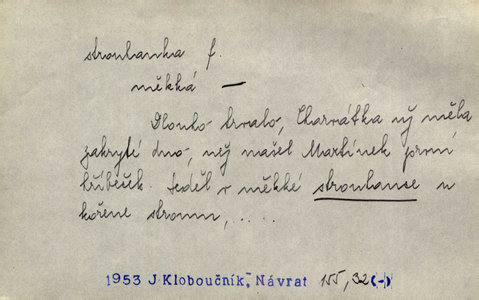 stroulanka f.
měkká —
Dlouho trvalo, Charvátka už měla
zakryté dno, než našel Martínek první
hříbeček. Seděl v měkké stroulance u
kořene stromu, .....
1953 J. Kloboučník, Návrat 155, 32 (-)